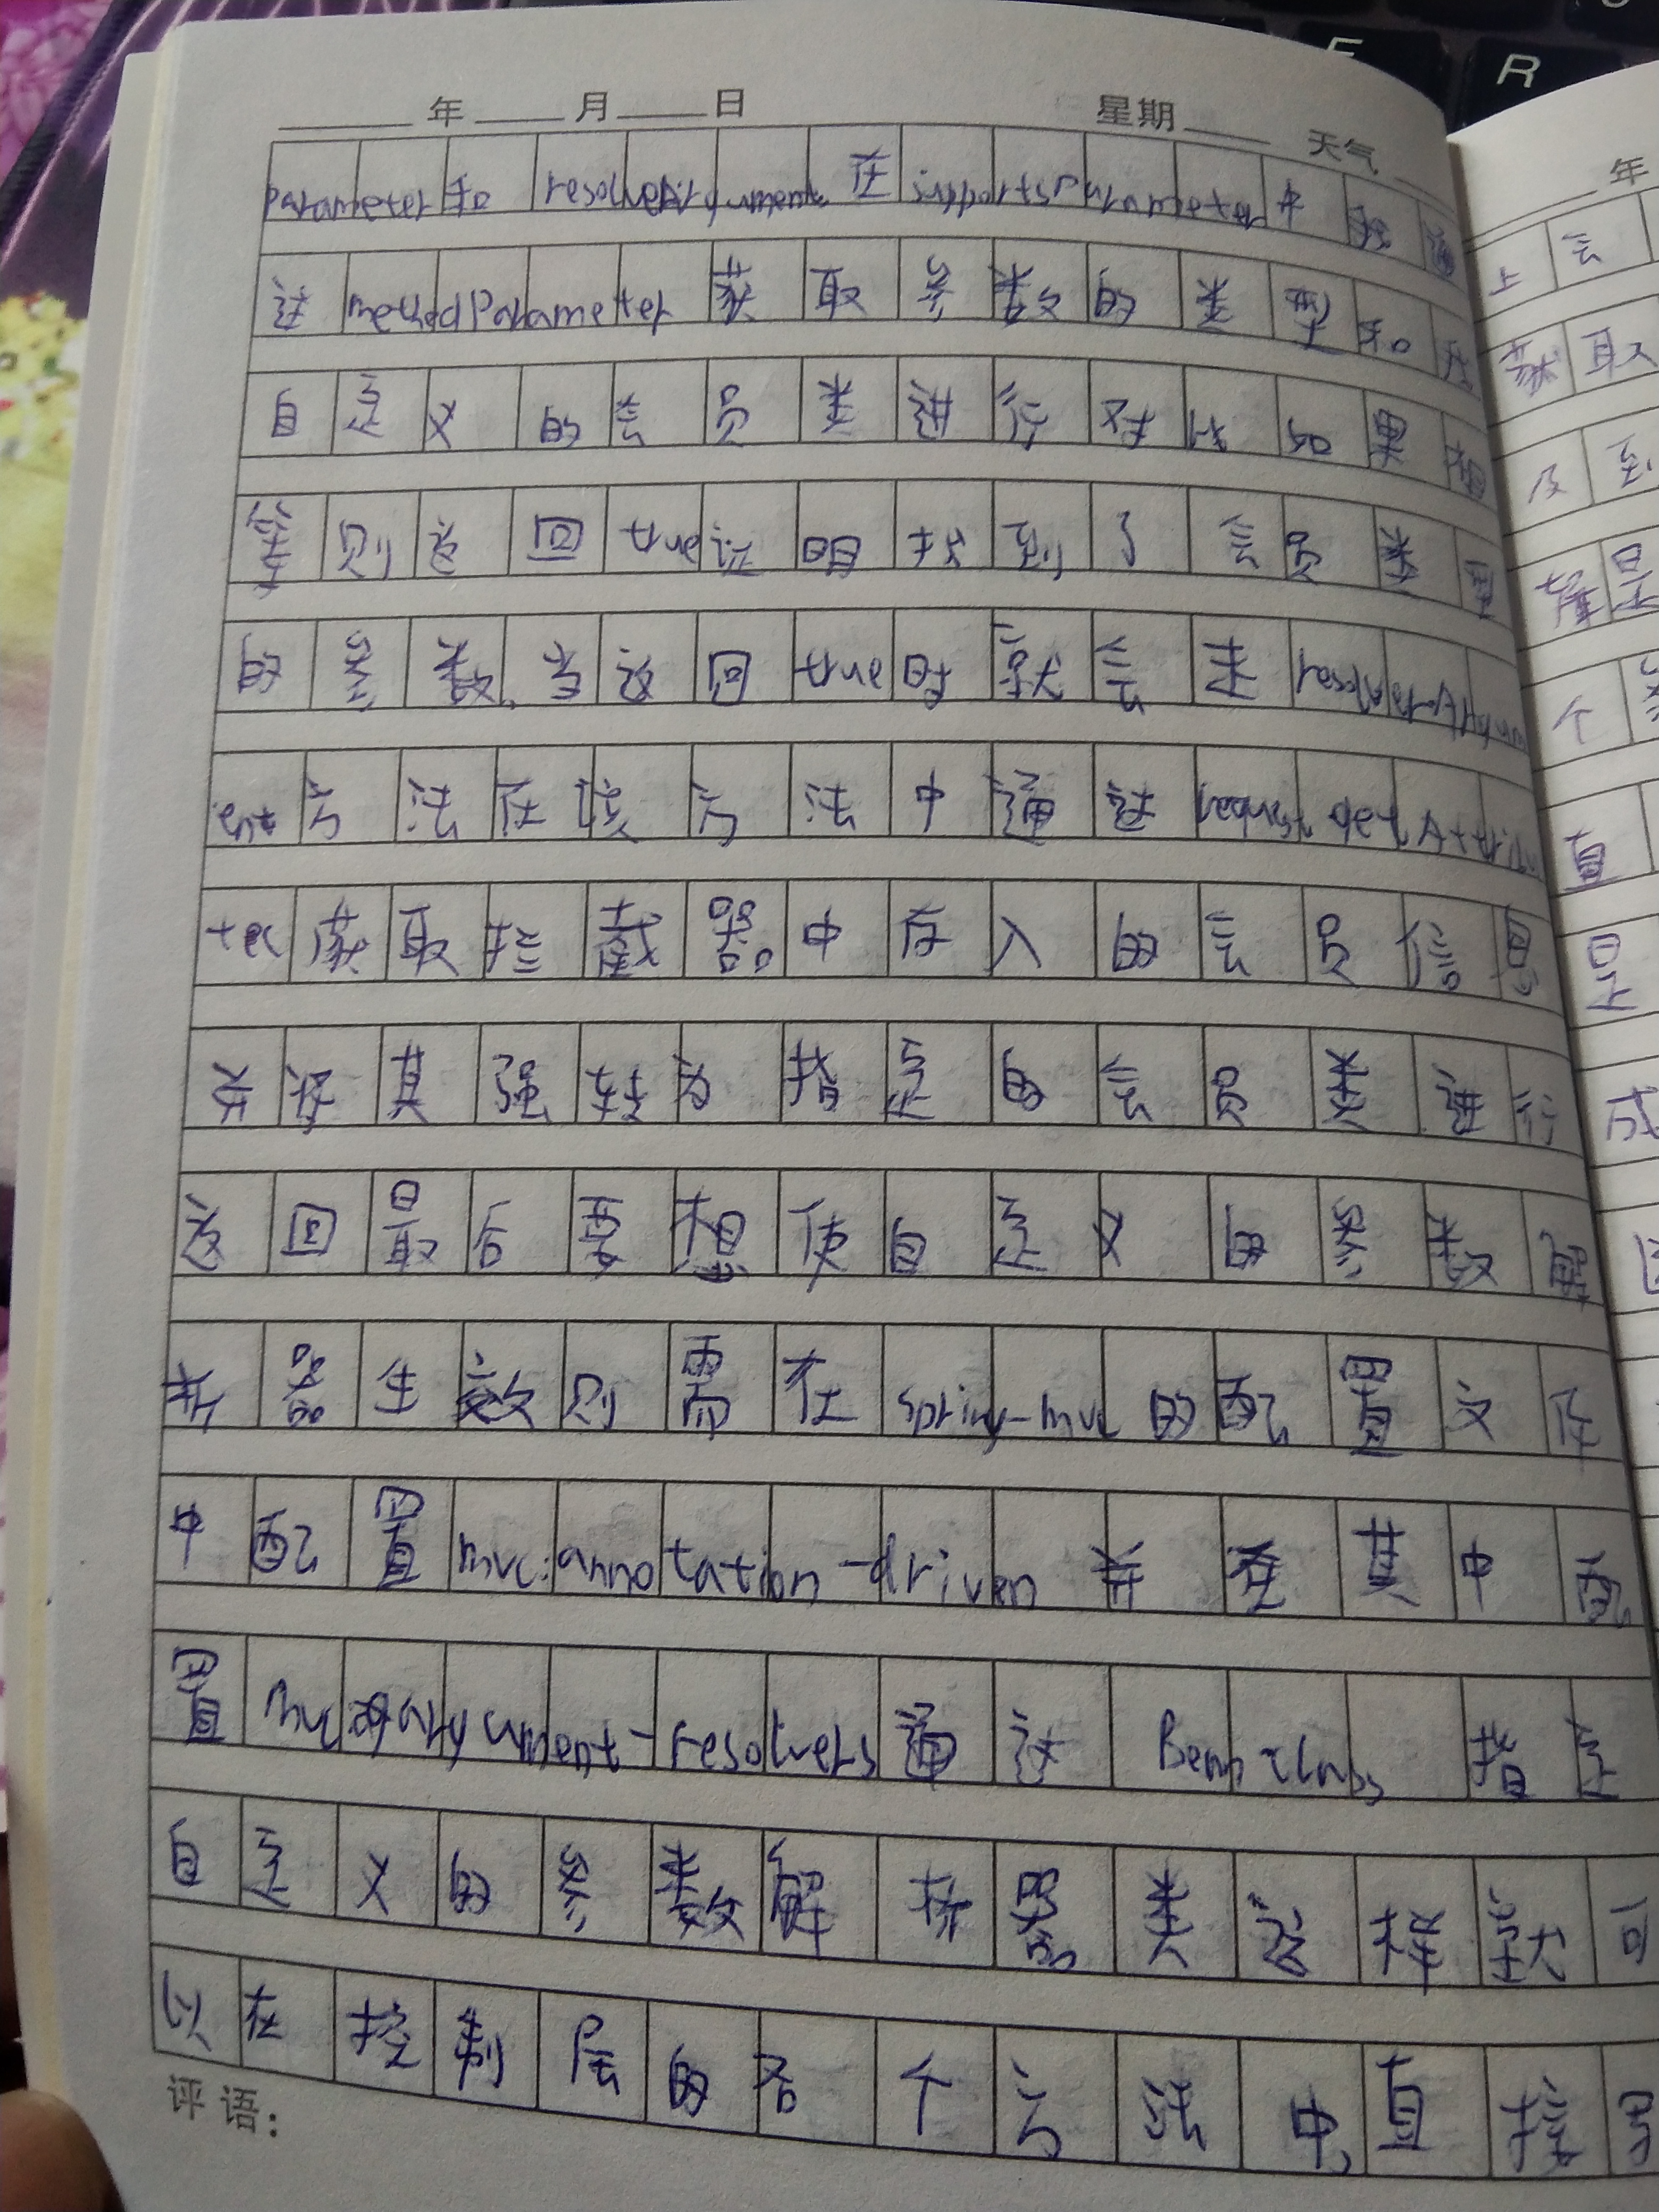 年 月 日 星期 天气
parameter和 resolveArgument. 在supportsParameter中 我 通
过 methodParameter 获取参数的类型和我
自定义的会员类进行对比如果相
等则返回true证明找到了会员类型
的参数,当返回true时就会走resolverArgum
ent方法在该方法中通过request getAttribu
tex获取拦截器。中存入的会员信息
并将其强转为指定的会员类进行
返回最后要想使自定义的参数解
析器生效则需在spring-mvc的配置文件
中配置mvc:annotation-driven并在其中配
置mvc:argument-resolvers通过 Bean class 指定
自定义的参数解析器类这样就可
以在控制层的各个方法中,直接写
评语:
年
上会
获取
及到
是
个
直
是
成